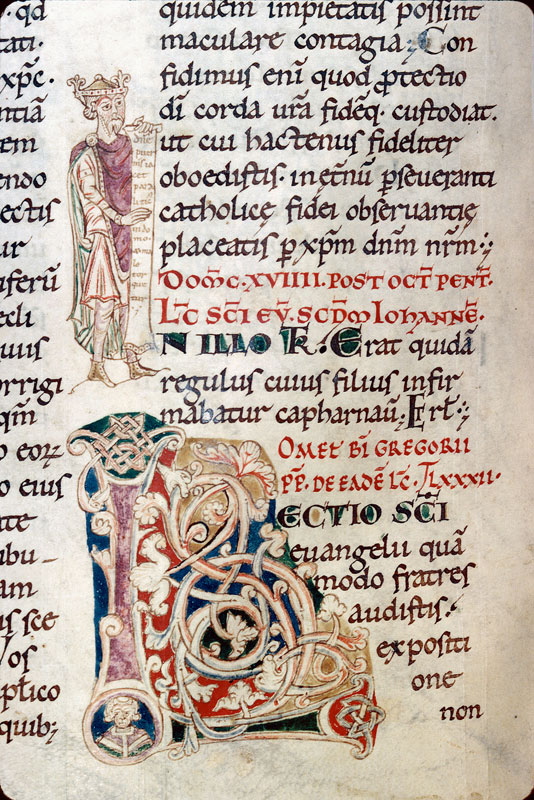 . qd
tati.
xp̄c.
ntiā
tem
endo
ectis
ur
iferū
ecli
quis
orrigi
qm̄
o eoꝝ
o eius
ate
ibu
am
is sce
Vos
ptico
quibꝫ
quidem impietatis possint
maculare contagia; Con
fidimus eni quod ꝓtectio
dī corda urā fidēq. custodiat.
ut cui hactenus fideliter
oboedistis. in et̄nū ꝑseueranti
catholicę fidei obseruantię
placeatis ꝑ xp̄m dn̄m nr̄m;
Dom̄c. XVIIII. POST OCT̄ PENT̄.
Lc̄ SC̄I EV̄. SCD̄M IOHANNĒ.
N ILLO T̄. Erat quidā
regulus cuius filius infir
mabatur capharnaū. Et rl̄;
OMEL̄ BĪ GREGORII
PP̄. DE EADĒ LC̄. LXXXII.
LECTIO SC̄I
euangelii quā
modo fratres
audistis.
expositi
one
non